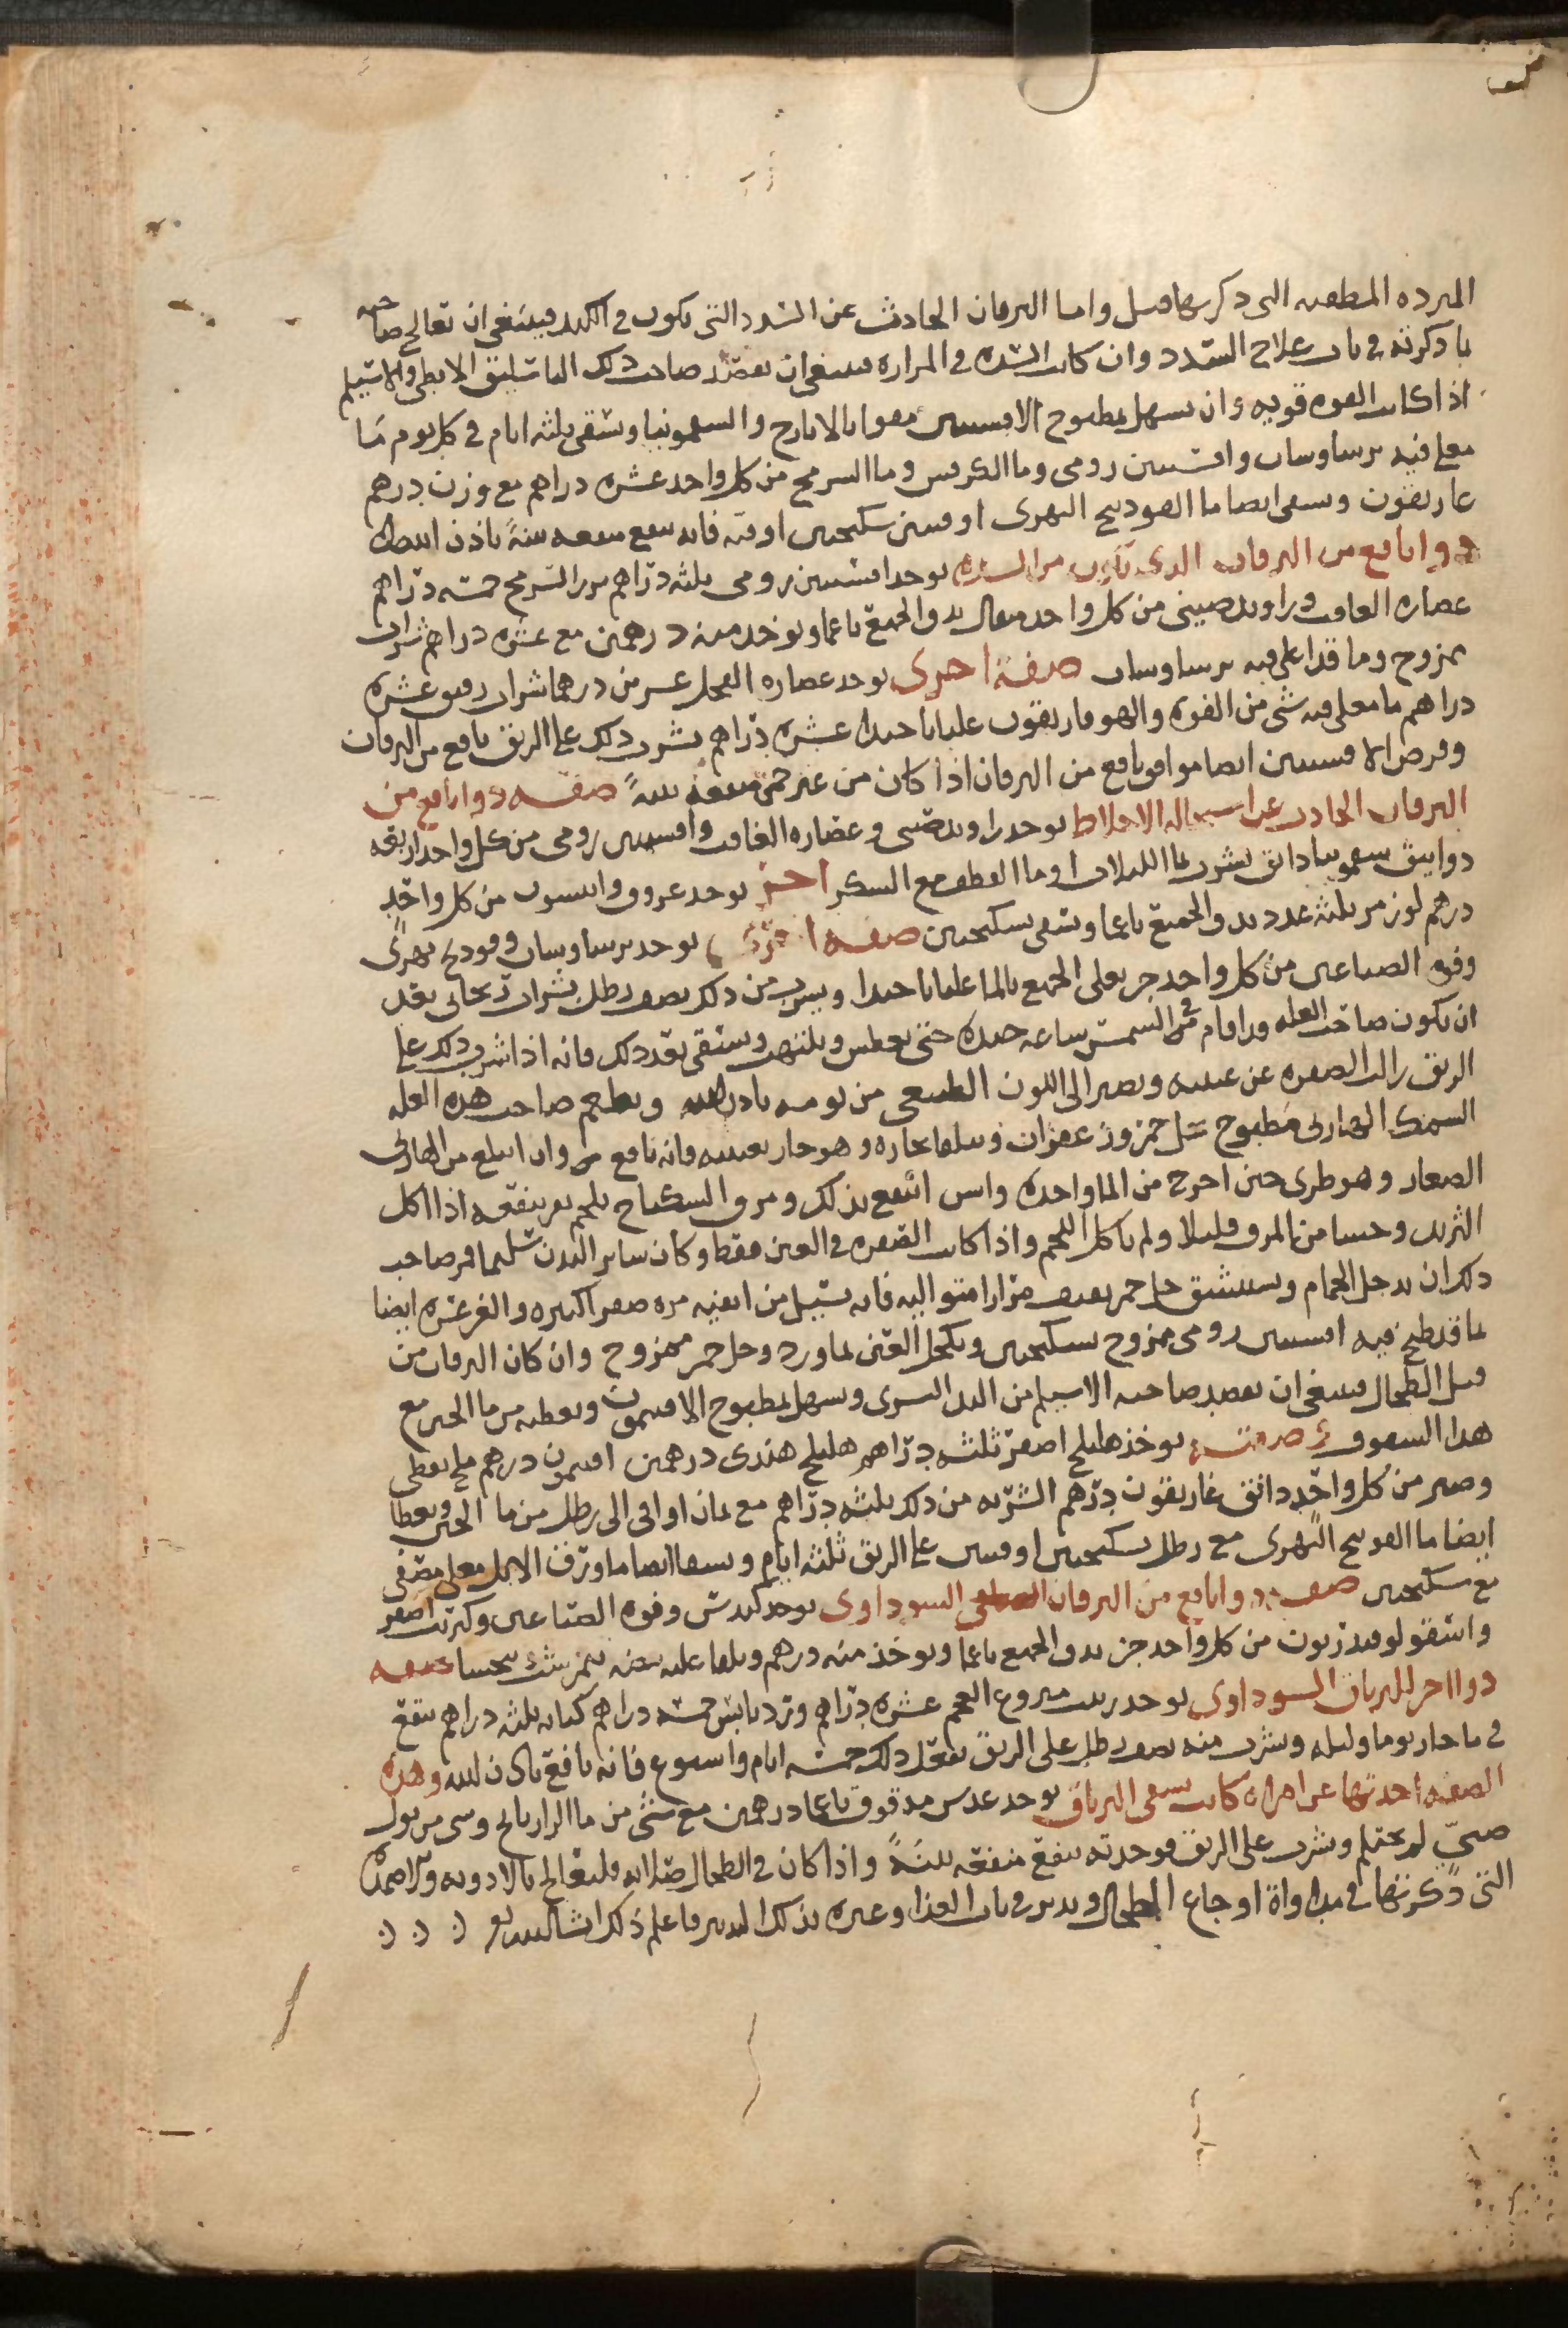 المبرده المطفيه التى ذكرتها قبل واما اليرقان الحادث عن السدد التى تكون فى الكبد فينبغى ان تعالج صاحبه
بما ذكرته فى باب علاج السدد وان كانت السده فى المراره فينبغى ان يفصد صاحب ذلك الباسليق الابطى والاسيلم
اذا كانت القوه قويه وان يسهل بمطبوخ الافسنتين مقوا بالايارج والسقمونيا ويسقى ثلثه ايام فى كل يوم ما
مغلى فيه برسياوسان وافسنتين رومى وما الكرفس وما السرمج من كل واحد عشره دراهم مع وزن درهم
غاريقون ويسقى ايضا ما الفودنج النهرى اوقيتين سكنجبين اوقيه فانه ينفع منفعه بينةً باذن الله
دوا نافع من اليرقان الذى تكون من السده يوخذ افسنتين رومى ثلثه دراهم بزر السرمج خمسه دراهم
عصاره الغافت وراوند صينى من كل واحد مثقال يدق الجميع ناعما ويوخذ منه درهمين مع عشره دراهم شراب
ممزوج وما قد اغلى فيه برسياوسان صفة اخرى يوخذ عصاره الفجل عشرين درهما شراب رقيق عشره
دراهم ما مغلى فيه شى من الفوه والهوفاريقون غليانا جيدا عشره دراهم يشرب ذلك على الريق نافع من اليرقان
وقرص الافسنتين ايضا موافق نافع من اليرقان اذا كان من غير حمى منفعه بينةً صفـه دوا نافع من
اليرقان الحادث عن استحاله الاخلاط يوخذ راوند صينى وعصاره الغافت وافسنتين رومى من كل واحد اربعه
دوانيق سقمونيا دانق يشرب بما اللبلاب او ما القطف مع السكر اخر يوخذ عروق وانيسون من كل واحد
درهم لوز مر ثلثه عدد يدق الجميع ناعما ويسقى بسكنجبين صفه اخرى يوخذ برسياوسان وفودنج نهرى
وفوه الصباغين من كل واحد جز يغلى الجميع بالما غليانا جيدا ويشرب من ذلك نصف رطل بشراب ريحانى بعد
ان تكون صاحب العله قد اقام فى الشمس ساعه جيده حتى يعطش ويلتهب ويسقى بعد ذلك فانه اذا شرب ذلك على
الريق زالت الصفره عن عينيه وتصير الى اللون الطبيعى من يومه باذن الله ويطعم صاحب هذه العله
السمك الهازلى مطبوخ بخل خمر وزعفران ويتلقا بخاره وهو حار بعينيه فانه نافع وان ابتلع من الهازلى
الصغار وهو طرى حين اخرج من الما واحده واثنين انتفع بذلك ومرق السكباج بلحم بقر ينفعه اذا اكل
الثريد وحسا من المرق قليلا ولم ياكل اللحم واذا كانت الصفره فى العين فقط وكان ساير البدن سليما فمر صاحب
ذلك ان يدخل الحمام ويستنشق خل خمر بعنف مرارا متواليه فانه يسيل من انفيه مره صفرا كثيره والغرغره ايضا
بما قد طبخ فيه افسنتين رومى ممزوج بسكنجبين ويكحل العين بماورد وخل خمر ممزوج وان كان اليرقان من
قبل الطحال فينبغى ان يفصد صاحبه الاسيلم من اليد اليسرى ويسهل بمطبوخ الافتيمون ويعطيه من ما الجبن مع
هذا السفوف صفته يوخذ هليلج اصفر ثلثه دراهم هليلج هندى درهمين افتيمون درهم ملح نفطى
وصبر من كل واحد دانق غاريقون درهم الشربه من ذلك ثلثه دراهم مع ثمان اواقى الى رطل من ما الجبن ويعطا
ايضا ما الفودنج النهرى مع رطل سكنجبين اوقيتين على الريق ثلثه ايام ويسقا ايضا ما ورق الاثل مغلى مصفى
مع سكنجبين صفه دوا نافع من اليرقان السوداوى يوخذ كندش وفوه الصباغين وكبريت اصفر
واسقولوقندريون من كل واحد جز يدق الجميع ناعما ويوخذ منه درهم ويلقا عليه بيضه نيمرشت يتحسا صفه
دوا اخر لليرقان السوداوى يوخذ زبيب منزوع العجم عشره دراهم وتربد يابس خمسه دراهم كبابه ثلثه دراهم ينقع
فى ما حار يوما وليله ويشرب منه نصف رطل على الريق يفعل ذلك خمسه ايام واسبوع فانه نافع باذن الله وهذه
الصفه اخذتها عن امراه كانت تسقى اليرقان يوخذ عدس مدقوق ناعما درهمين مع شى من ما الرازيانج وشى من بول
صبىّ لم يحتلم ويشرب على الريق فوجدته ينفع منفعه بينةً واذا كان فى الطحال صلابه فليعالج بالادويه والاضمده
التى ذكرتها فى مداواة اوجاع الطحال ويدبر فى باب الغذا وغيره بذلك التدبير فاعلم ذلك انشاالله تع